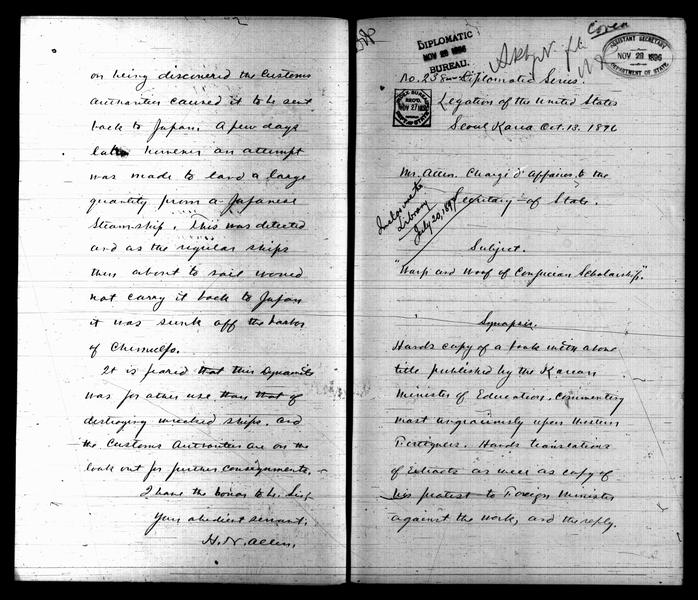 2
on being discovered the Customs
Authorities caused it to be sent
back to Japan. A few days
later however an attempt
was made to land a large
quantity from a Japanese
Steamship. This was detected
and as the regular ships
then about to sail would
not carry it back to Japan
it was sunk off the harbor
of Chemulpo.
It is feared that this dynamite
was for other use than that of
destroying wrecked ships, and
the Customs Authorities are on the
look out for further consignments.
I have the honor to be, Sir,
Your obedient servant,
H. N. Allen.
Cover
DIPLOMATIC
NOV 28 1896
BUREAU.
ASSISTANT SECRETARY
NOV 28 1896
DEPARTMENT OF STATE
No. 238 Diplomatic Series.
REC'D
NOV 27
DEPT OF STATE
Legation of the United States
Seoul Korea Oct. 13. 1896
Mr. Allen. Chargé d'Affaires to the
Secretary of State.
Inclosure to
Library
July 20, 1897
Subject.
"Warp and Woof of Confucian Scholarship".
Synopsis.
Hands copy of a book with above
title published by the Korean
Minister of Education. Commenting
most ungraciously upon Western
Foreigners. Hands translations
of Extracts as well as copy of
his protest to Foreign Minister
against the work, and the reply.